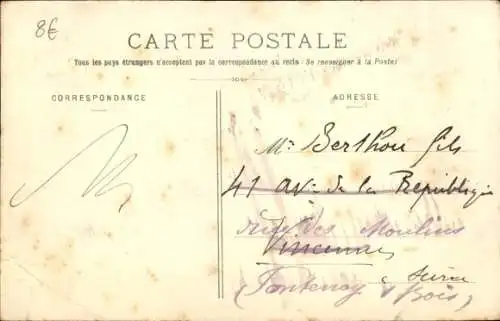 8€
CARTE POSTALE
Tous les pays étrangers n'acceptent pas la correspondance au recto: (Se renseigner à la Poste)
CORRESPONDANCE
ADRESSE
Mr Berthou fils
41 av. de la République
rue des Moulins
Vincennes
Seine
(Fontenay s Bois)